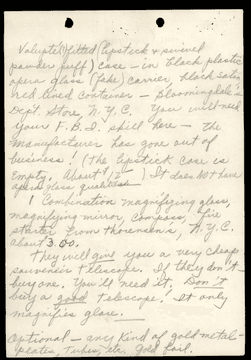 Volupté (?) fitted (lipstick & swivel
powder puff) case - in black plastic
opera glass (fake) carrier, black satin,
red lined container - Bloomingdale's
Dept. Store, N.Y.C. You will need
your F.B.I. skill here - the
manufacturer has gone out of
business! (The lipstick case is
empty. About $12) It does not have
opera glass qualities.
1 Combination magnifying glass,
magnifying mirror, compass, fire
starter from Thorensen's, N.Y.C.
about 3.00.
They will give you a very cheap
souvenir telescope. If they don't -
buy one. You'll need it. Don't
buy a good telescope. It only
magnifies glare.
Optional - any kind of gold metal
plates, tubes, etc. gold foil.